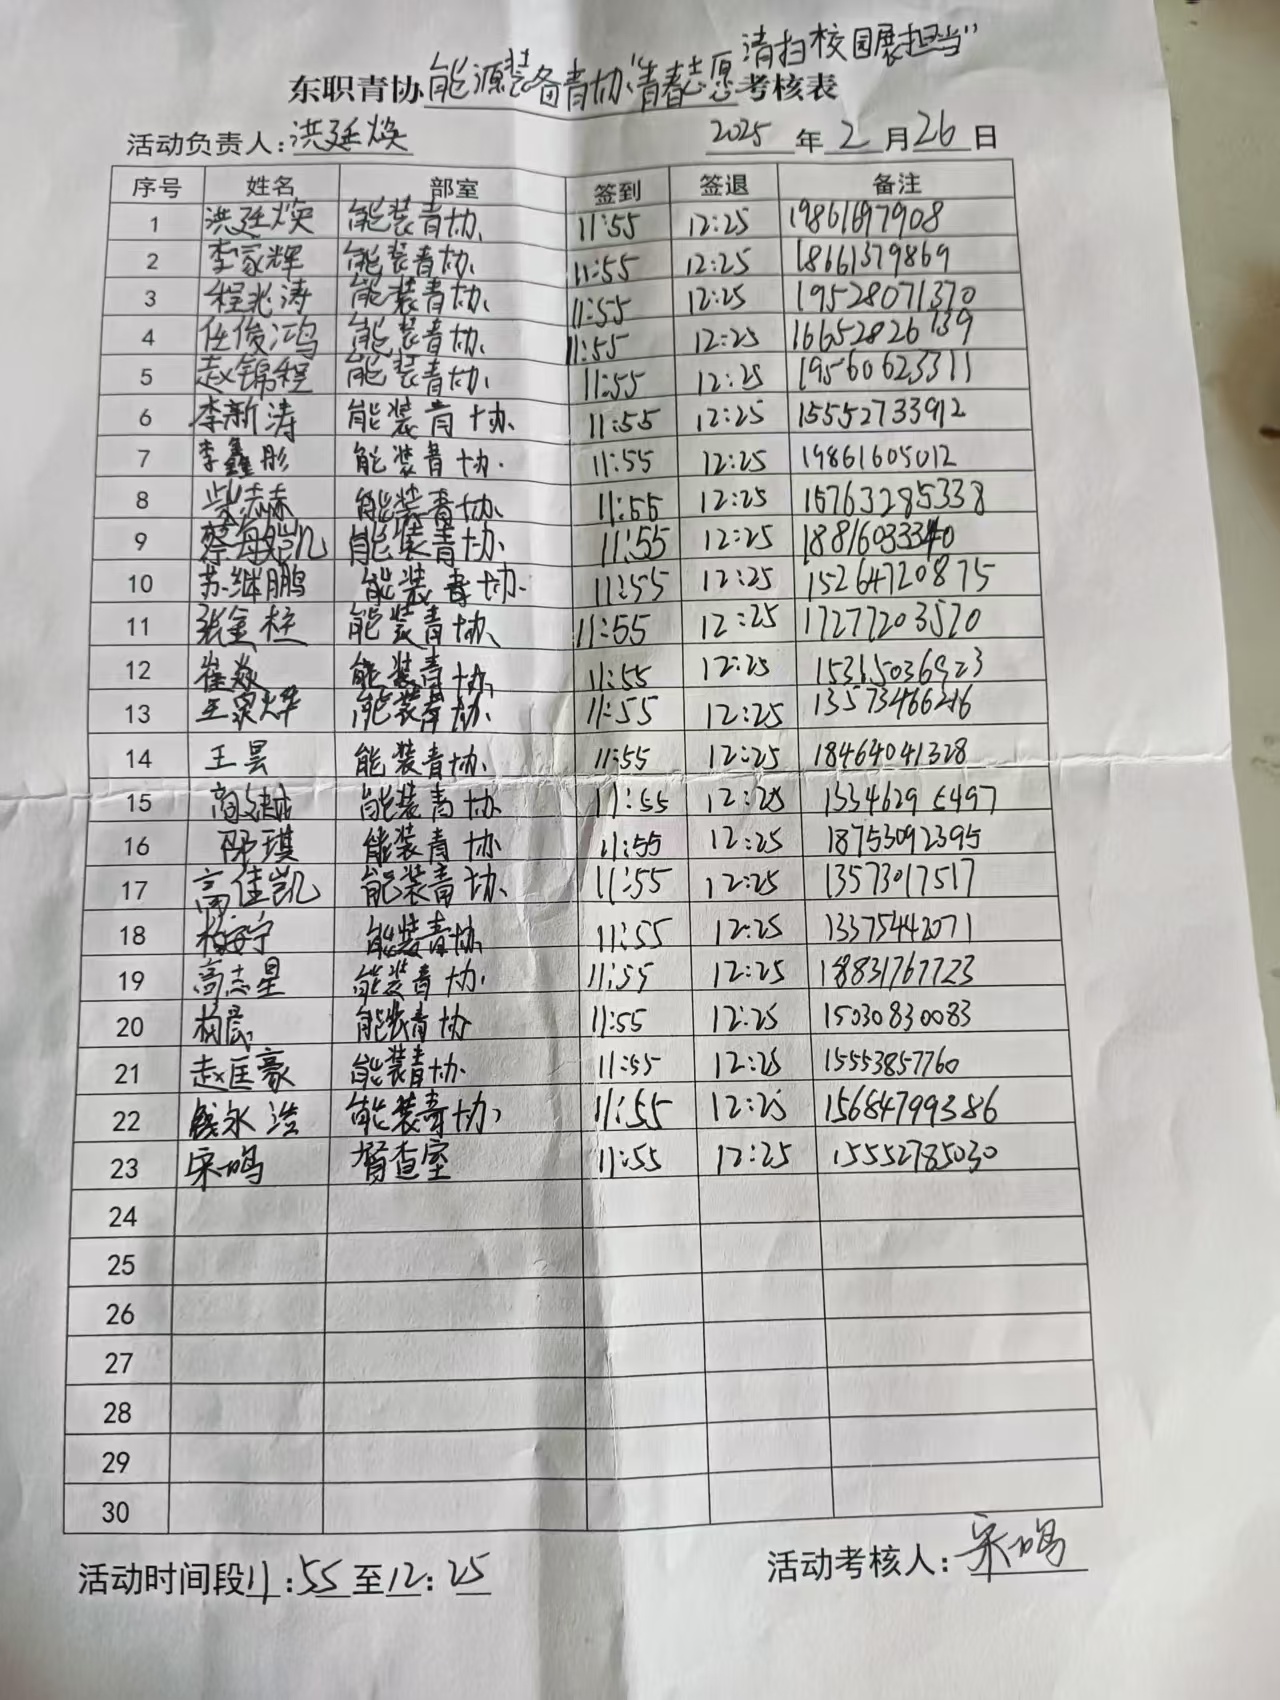 清扫校园展担当”
东职青协能源装备青协“青春志愿考核表
活动负责人:洪廷焕 2025年2月26日
序号 姓名 部室 签到 签退 备注
1 洪廷焕 能装青协 11:55 12:25 19861697908
2 李家辉 能装青协 11:55 12:25 18661379869
3 程兆涛 能装青协 11:55 12:25 19528071370
4 任俊鸿 能装青协 11:55 12:25 16652826139
5 赵锦程 能装青协 11:55 12:25 19560623311
6 李新涛 能装青协 11:55 12:25 15552733912
7 李鑫彤 能装青协 11:55 12:25 19861605012
8 柴赤赤 能装青协 11:55 12:25 15763285338
9 能装青协 11:55 12:25
10 苏继鹏 能装青协 11:55 12:25 15264720875
11 张金柱 能装青协 11:55 12:25 17277203570
12 崔焱 能装青协 11:55 12:25 15315036923
13 能装青协 11:55 12:25 13573466216
14 王昙 能装青协 11:55 12:25 18464041328
15 能装青协 11:55 12:25 15346295497
16 邵琪 能装青协 11:55 12:25 18753092395
17 高佳凯 能装青协 11:55 12:25 13573017517
18 能装青协 11:55 12:25 13375442071
19 高志星 能装青协 11:55 12:25 18831767723
20 能装青协 11:55 12:25 15030830083
21 赵匡豪 能装青协 11:55 12:25 15553857760
22 钱永浩 能装青协 11:55 12:25 15684799386
23 宋鸣 督查室 11:55 12:25 15552785030
24
25
26
27
28
29
30
活动时间段11:55至12:25 活动考核人:宋鸣